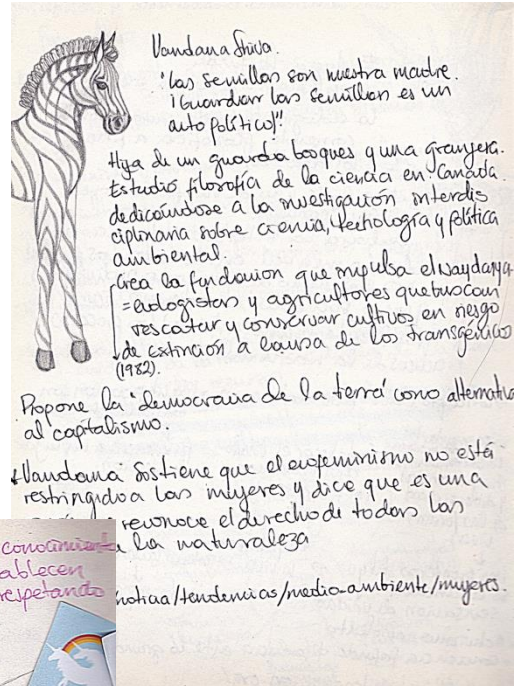 Vandana Shiva.
"Las semillas son nuestra madre.
¡Guardar las semillas es un
auto político!"
Hija de un guarda bosques y una granjera.
Estudio filosofía de la ciencia en Canada.
dedicaándose a la investigación interdis
ciplinaria sobre ciencia, tecnología y política
ambiental.
Crea la fundación que impulsa el Navdanya
= ecologistas y agricultores que buscan
rescatar y conservar cultivos en riesgo
de extinción a causa de los transgénicos
(1982).
Propone la 'democracia de la tierra' como alternativa
al capitalismo.
Vandana sostiene que el ecofeminismo no está
restringido a las mujeres y dice que es una
reconoce el derecho de todas las
la naturaleza
noticia/tendencias/medio-ambiente/mujeres.
conocimiento
ablecen
respetando